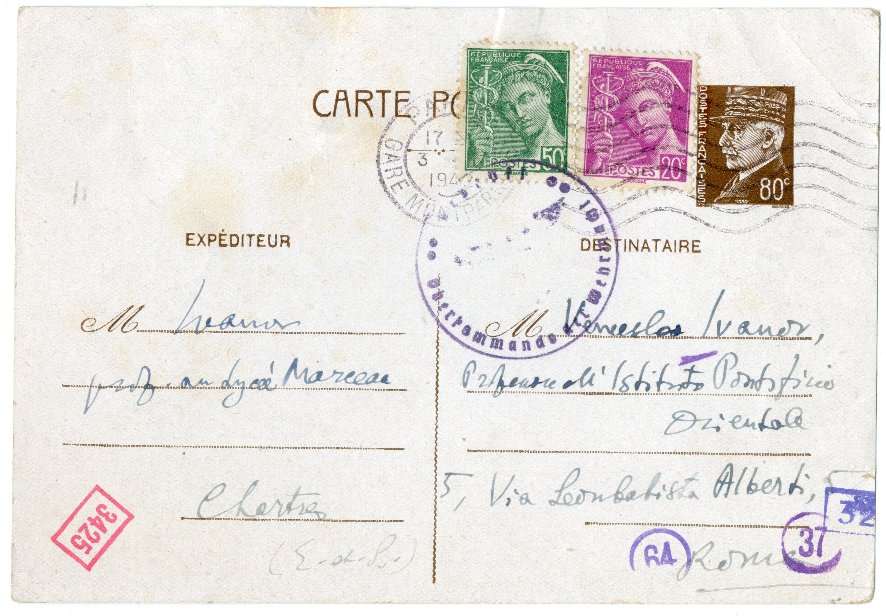 CARTE PO
RÉPUBLIQUE FRANÇAISE
POSTES 50c
RÉPUBLIQUE FRANÇAISE
POSTES 20c
POSTES FRANÇAISES
80c
PA
17
3
194
GARE MONTPARN
Oberkommando der Wehrmacht
EXPÉDITEUR
M Ivanov
prof. au Lycée Marceau
Chartres
(E.-et-L.)
3425
DESTINATAIRE
M Venceslao Ivanov,
Professore all' Istituto Pontificio
Orientale
5, Via Leonbatista Alberti, 5
Roma
64
37
32